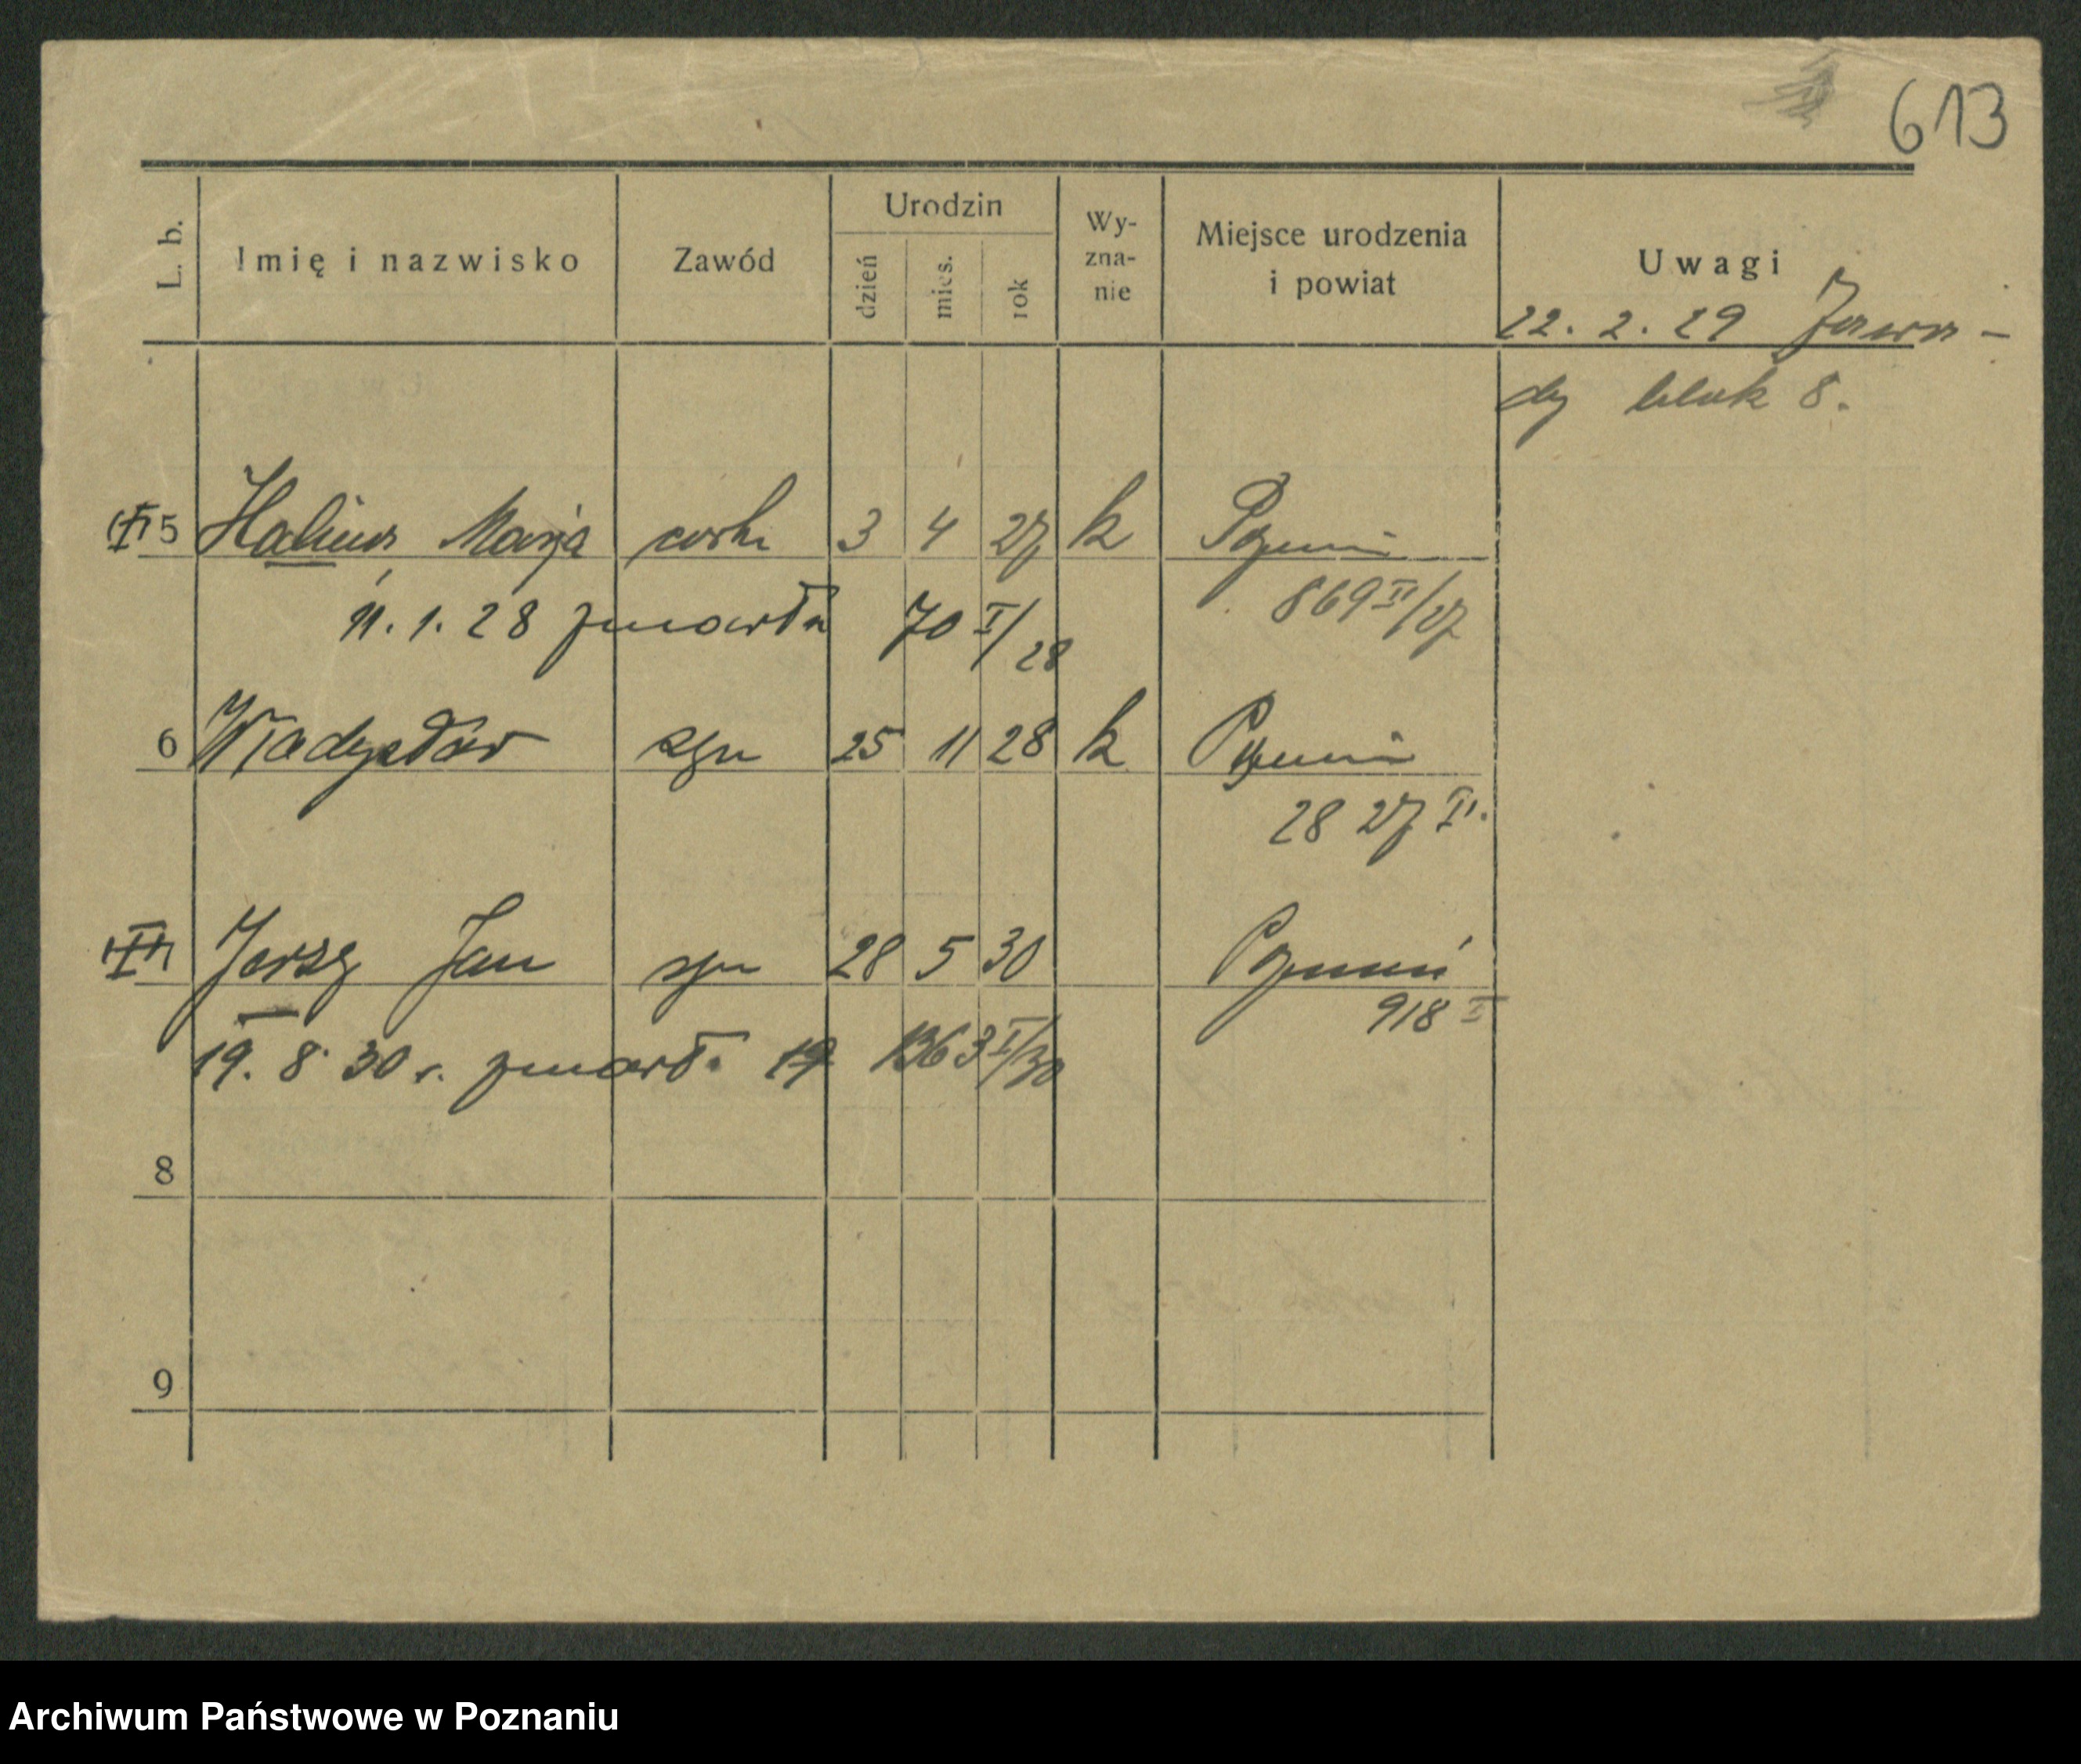 613
L. b. Imię i nazwisko Zawód Urodzin dzień mies. rok Wy-zna-nie Miejsce urodzenia i powiat Uwagi
22. 2. 29 Zawa-
dy blok 8.
5 Halina Marja córka 3 4 27 k Poznań
11. 1. 28 zmarła 70 I/28 869 II/27
6 Władysław syn 25 11 28 k Poznań
28 27 II.
Jerzy Jan syn 28 5 30 Poznań
918 I
19. 8. 30 r. zmarł. 1363 I/30
8
9
Archiwum Państwowe w Poznaniu